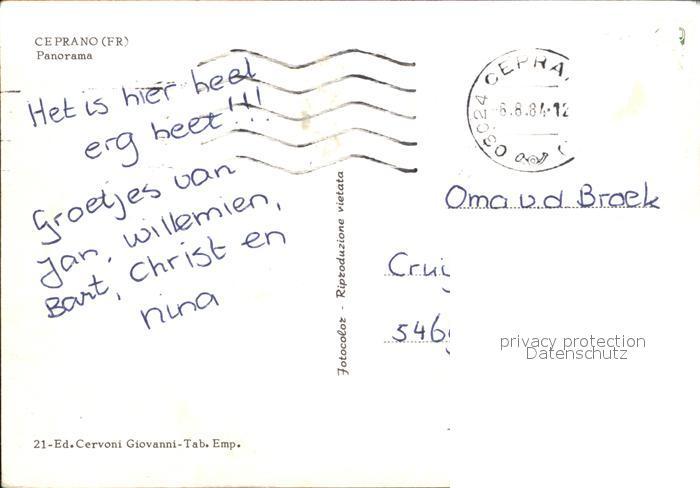 CEPRANO (FR)
Panorama
Het is hier heel
erg heet!!!
Groetjes van
Jan, Willemien,
Bart, Christ en
nina
21-Ed. Cervoni Giovanni-Tab. Emp.
Fotocolor - Riproduzione vietata
CEPRA
6.8.84-12
03024
Oma v.d Broek
Crui
546
privacy protection
Datenschutz